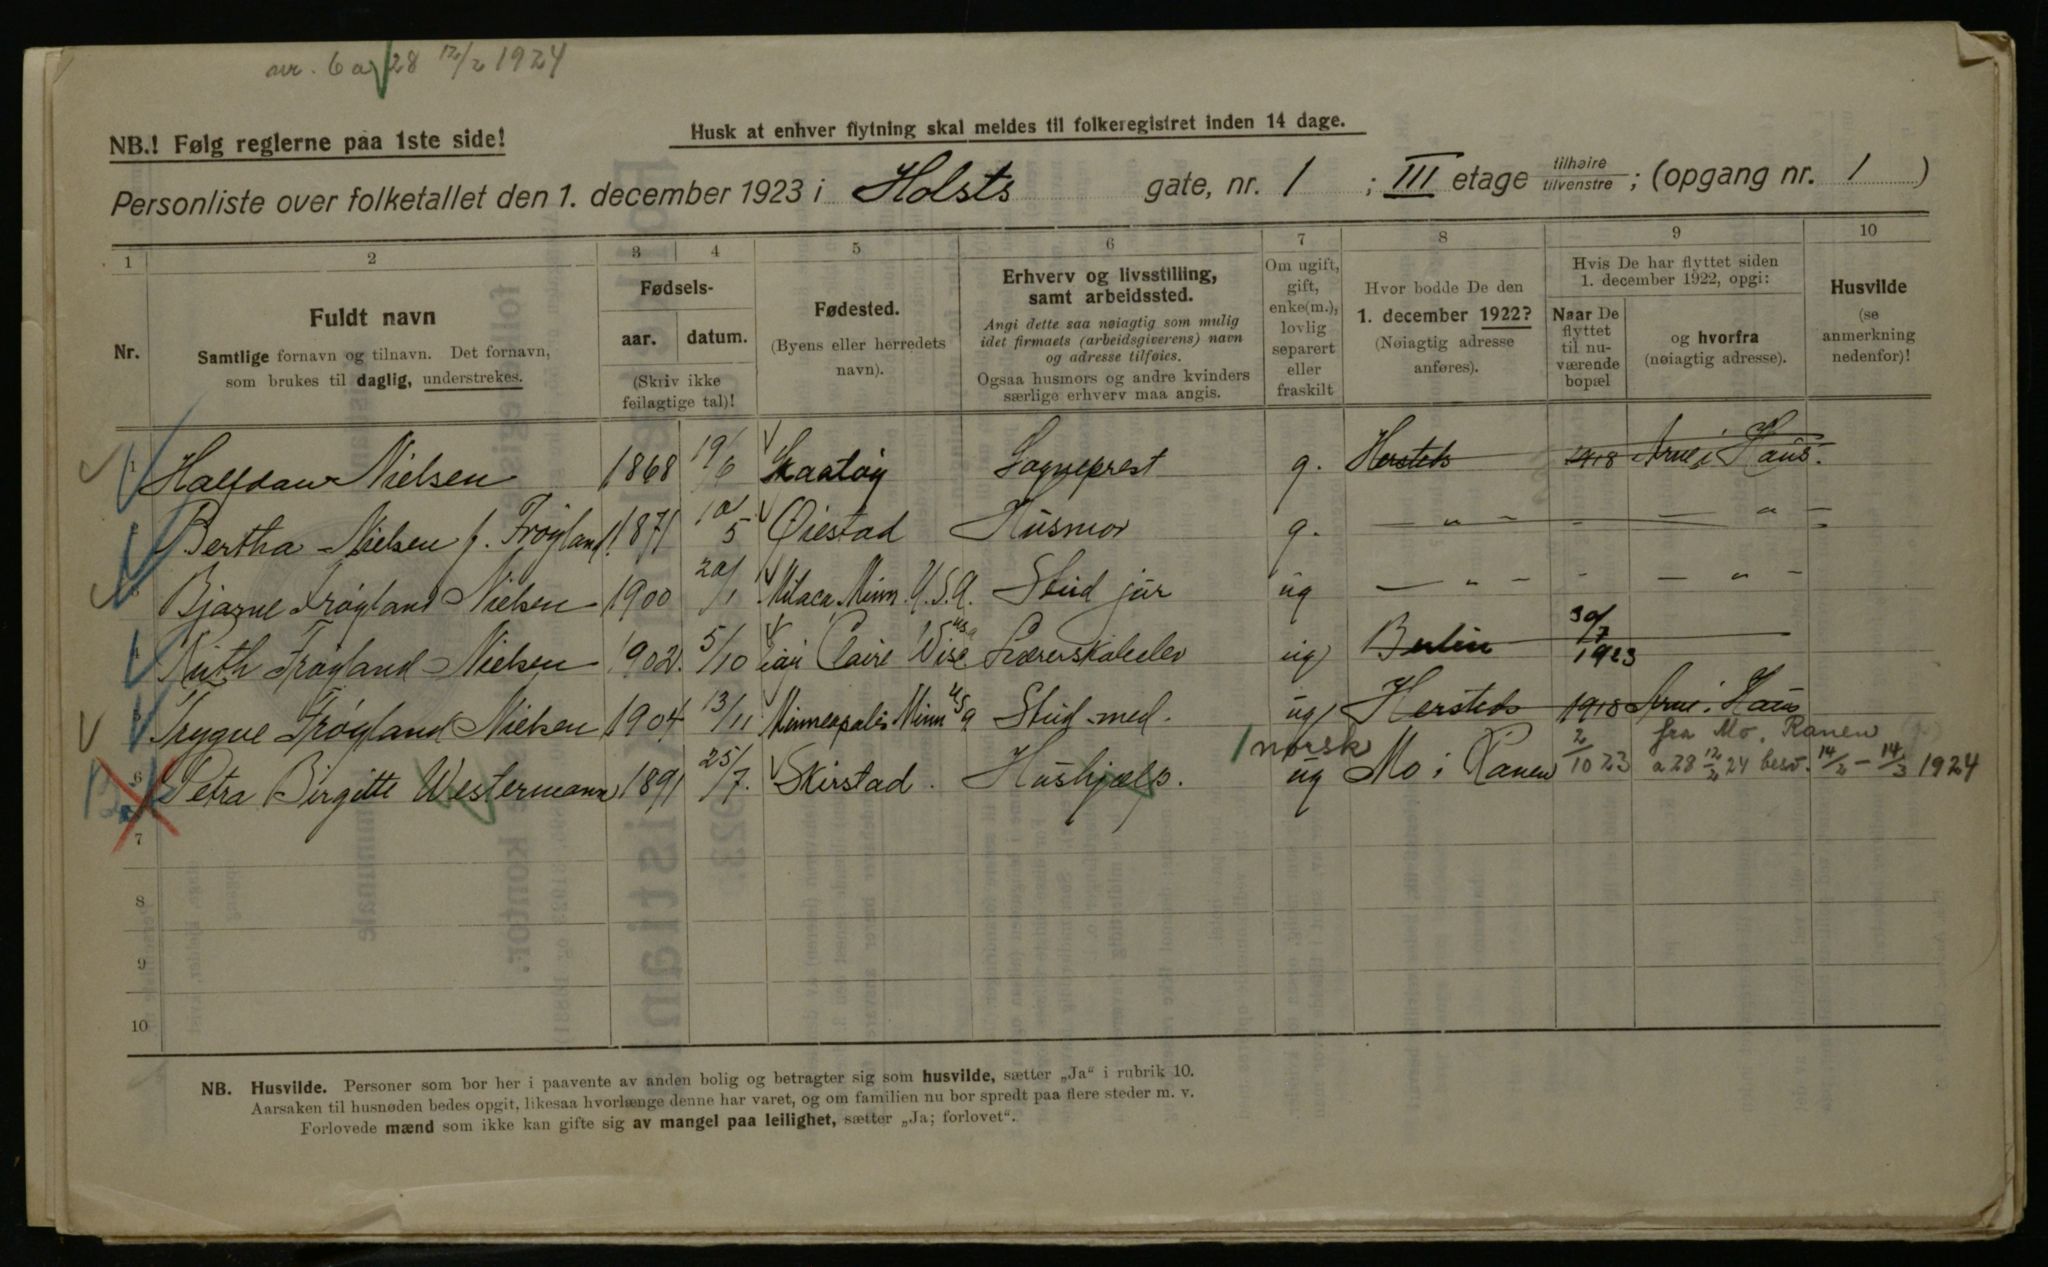 nr. 6 a 28 12/2 1924
NB.! Følg reglerne paa 1ste side!
Husk at enhver flytning skal meldes til folkeregistret inden 14 dage.
Personliste over folketallet den 1. december 1923 i Holsts gate, nr. 1 ; III etage tilhøire/tilvenstre ; (opgang nr. 1 )
1 2 3 4 5 6 7 8 9 10
Nr.
Fuldt navn
Samtlige fornavn og tilnavn. Det fornavn,
som brukes til daglig, understrekes.
Fødsels-
aar. datum.
(Skriv ikke
feilagtige tal)!
Fødested.
(Byens eller herredets
navn).
Erhverv og livsstilling,
samt arbeidssted.
Angi dette saa nøiagtig som mulig
idet firmaets (arbeidsgiverens) navn
og adresse tilføies.
Ogsaa husmors og andre kvinders
særlige erhverv maa angis.
Om ugift,
gift,
enke(m.),
lovlig
separert
eller
fraskilt
Hvor bodde De den
1. december 1922?
(Nøiagtig adresse
anføres).
Hvis De har flyttet siden
1. december 1922, opgi:
Naar De
flyttet
til nu-
værende
bopæl
og hvorfra
(nøiagtig adresse).
Husvilde
(se
anmerkning
nedenfor)!
1 Halfdan Nielsen 1868 19/6 Skaatøy Sogneprest g. Hersteds 1918 Arne i Haus.
Bertha Nielsen f. Frøyland 1871 10/5 Øiestad Husmor g. — " — - — " —
3 Bjarne Frøyland Nielsen 1900 20/1 Milaca, Minn. U.S.A. Stud jur ug — " — - — " —
4 Ruth Frøyland Nielsen 1902. 5/10 Claire Wisc USA Lærerskoleelev ug Berlin 30/7 1923
5 Trygve Frøyland Nielsen 1904 13/11 Minneapolis Minn USA Stud. med. ug Hersteds 1918 Arne i Haus
6 Petra Birgitte Westermann 1891 25/7. Skirstad. Hushjælp. norsk ug Mo i Ranen 2/10 23 fra Mo, Ranen
a 28 12/2 24 besø. 14/2 – 14/3 1924
7
8
9
10
NB. Husvilde. Personer som bor her i paavente av anden bolig og betragter sig som husvilde, sætter „Ja“ i rubrik 10.
Aarsaken til husnøden bedes opgit, likesaa hvorlænge denne har varet, og om familien nu bor spredt paa flere steder m. v.
Forlovede mænd som ikke kan gifte sig av mangel paa leilighet, sætter „Ja; forlovet“.